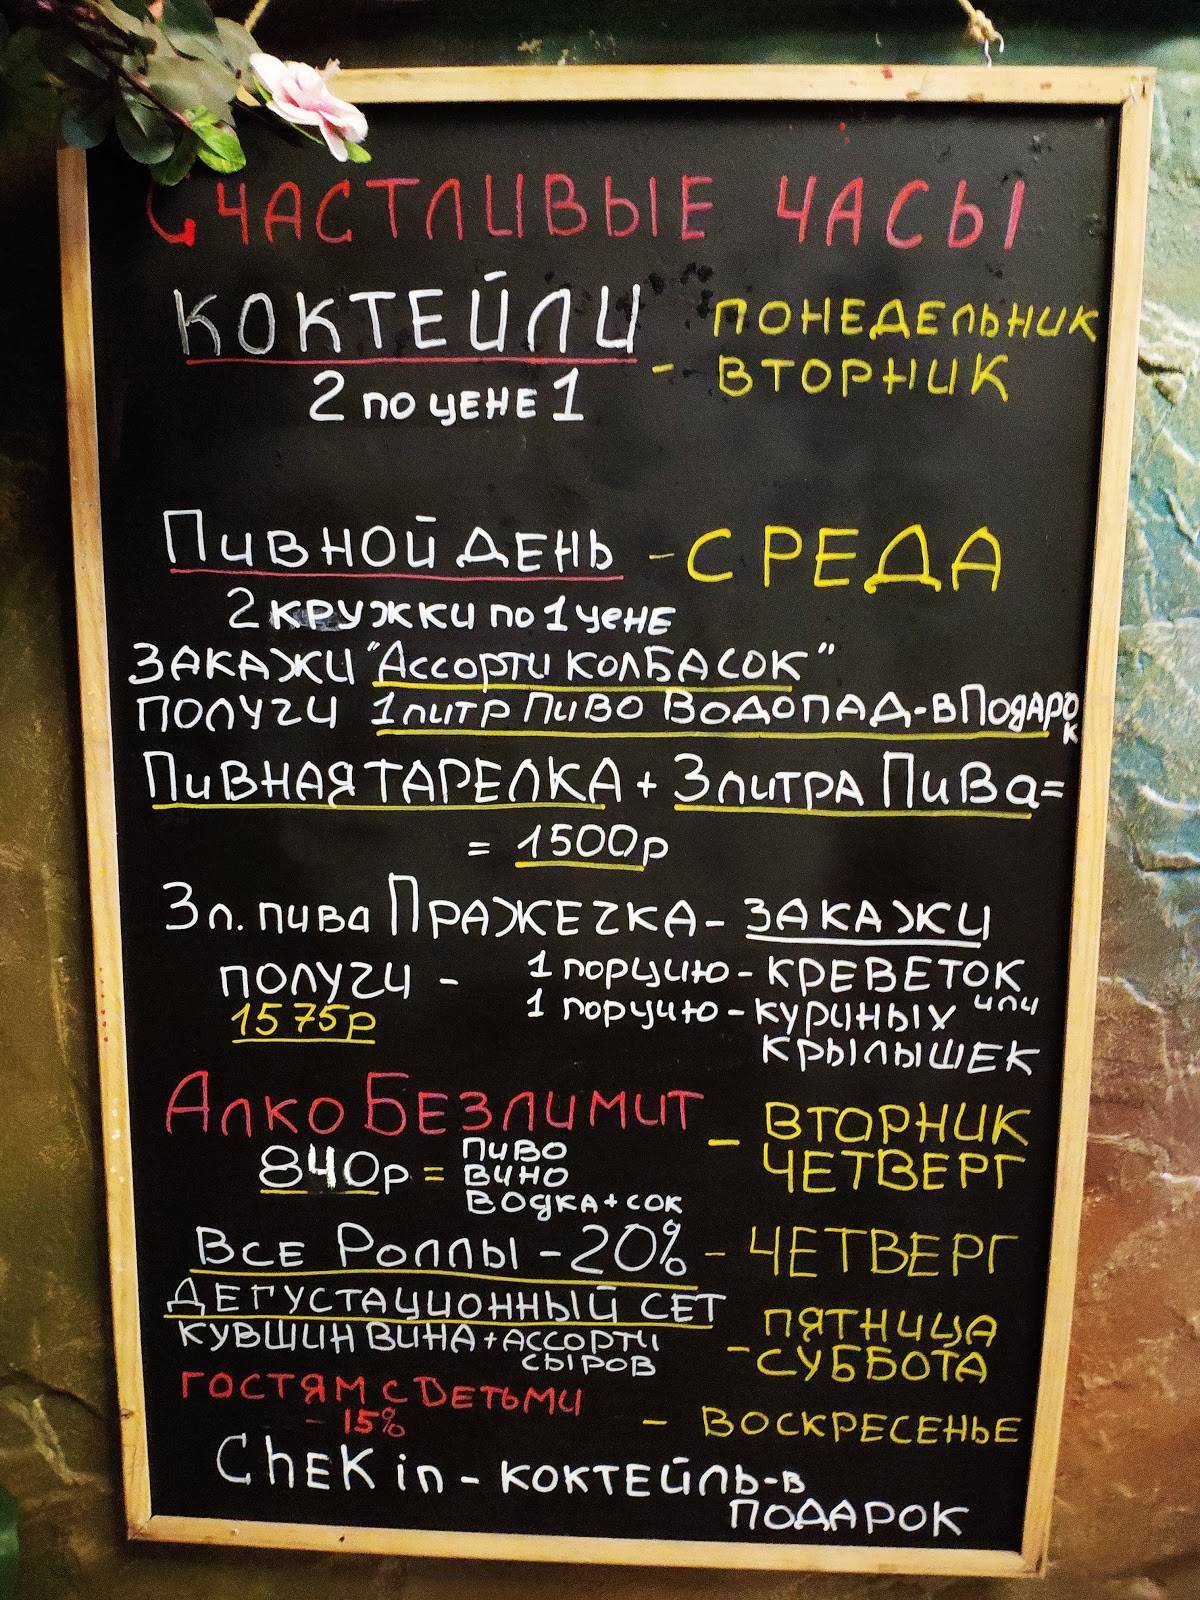 СЧАСТЛИВЫЕ ЧАСЫ
КОКТЕЙЛИ - ПОНЕДЕЛЬНИК
2 ПО ЦЕНЕ 1 ВТОРНИК
ПИВНОЙ ДЕНЬ - СРЕДА
2 КРУЖКИ ПО 1 ЦЕНЕ
ЗАКАЖИ "АССОРТИ КОЛБАСОК"
ПОЛУЧИ 1 ЛИТР ПИВО ВОДОПАД - В ПОДАРОК
ПИВНАЯ ТАРЕЛКА + 3 ЛИТРА ПИВА =
= 1500р
3 л. пива ПРАЖЕЧКА - ЗАКАЖИ
ПОЛУЧИ - 1 порцию - КРЕВЕТОК или
1575р 1 порцию - КУРИНЫХ
КРЫЛЫШЕК
АЛКО БЕЗЛИМИТ - ВТОРНИК
ЧЕТВЕРГ
840р = ПИВО
ВИНО
ВОДКА + СОК
ВСЕ РОЛЛЫ - 20% - ЧЕТВЕРГ
ДЕГУСТАЦИОННЫЙ СЕТ - ПЯТНИЦА
КУВШИН ВИНА + АССОРТИ СУББОТА
СЫРОВ
ГОСТЯМ С ДЕТЬМИ
- 15% - ВОСКРЕСЕНЬЕ
CheK in - КОКТЕЙЛЬ - В
ПОДАРОК